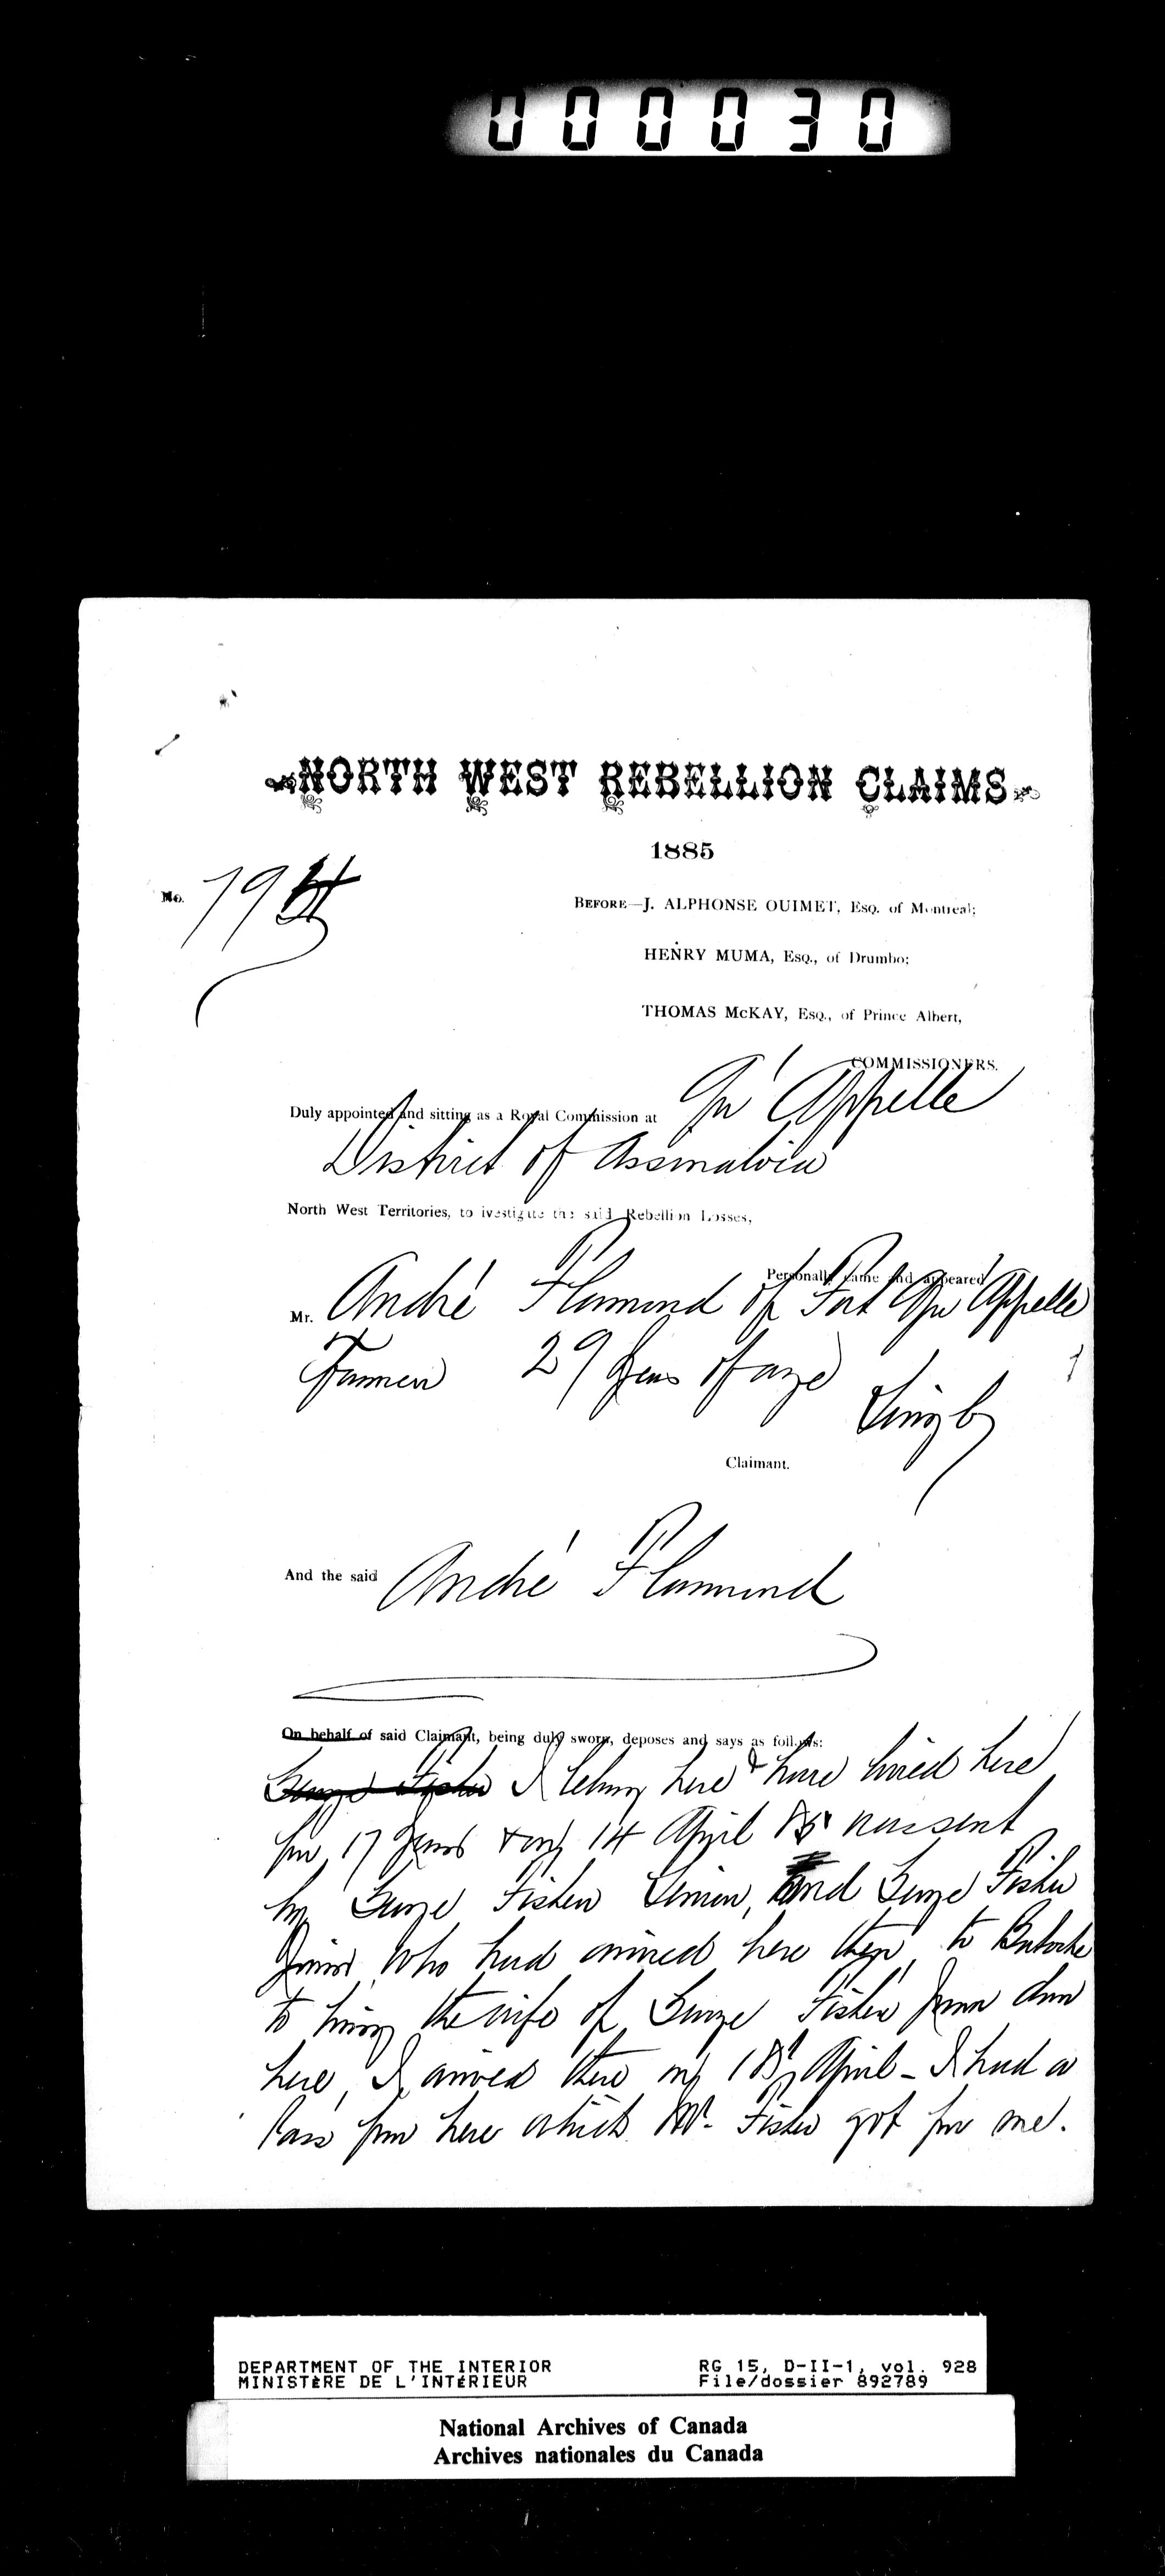 000030
NORTH WEST REBELLION CLAIMS
1885
No. 19
BEFORE—J. ALPHONSE OUIMET, Esq. of Montreal;
HENRY MUMA, Esq., of Drumbo;
THOMAS McKAY, Esq., of Prince Albert,
COMMISSIONERS.
Duly appointed and sitting as a Royal Commission at Qu'Appelle
District of Assinaboia
North West Territories, to ivestigate the said Rebellion Losses,
Personally came and appeared
Mr. André Flamond of Fort Qu'Appelle
Farmer 29 years of age
Claimant.
And the said André Flammond
On behalf of said Claimant, being duly sworn, deposes and says as follows:
George Fisher I belong here & have lived here
for 17 years & on 14 April 85 was sent
by George Fisher Senior, and George Fisher
Junior who had arrived here then, to Batoche
to bring the wife of George Fisher Junr down
here, I arrived there on 18th April - I had a
Pass from here which Mr. Fisher got for me.
DEPARTMENT OF THE INTERIOR
MINISTÈRE DE L'INTÉRIEUR
RG 15, D-II-1, vol. 928
File/dossier 892789
National Archives of Canada
Archives nationales du Canada